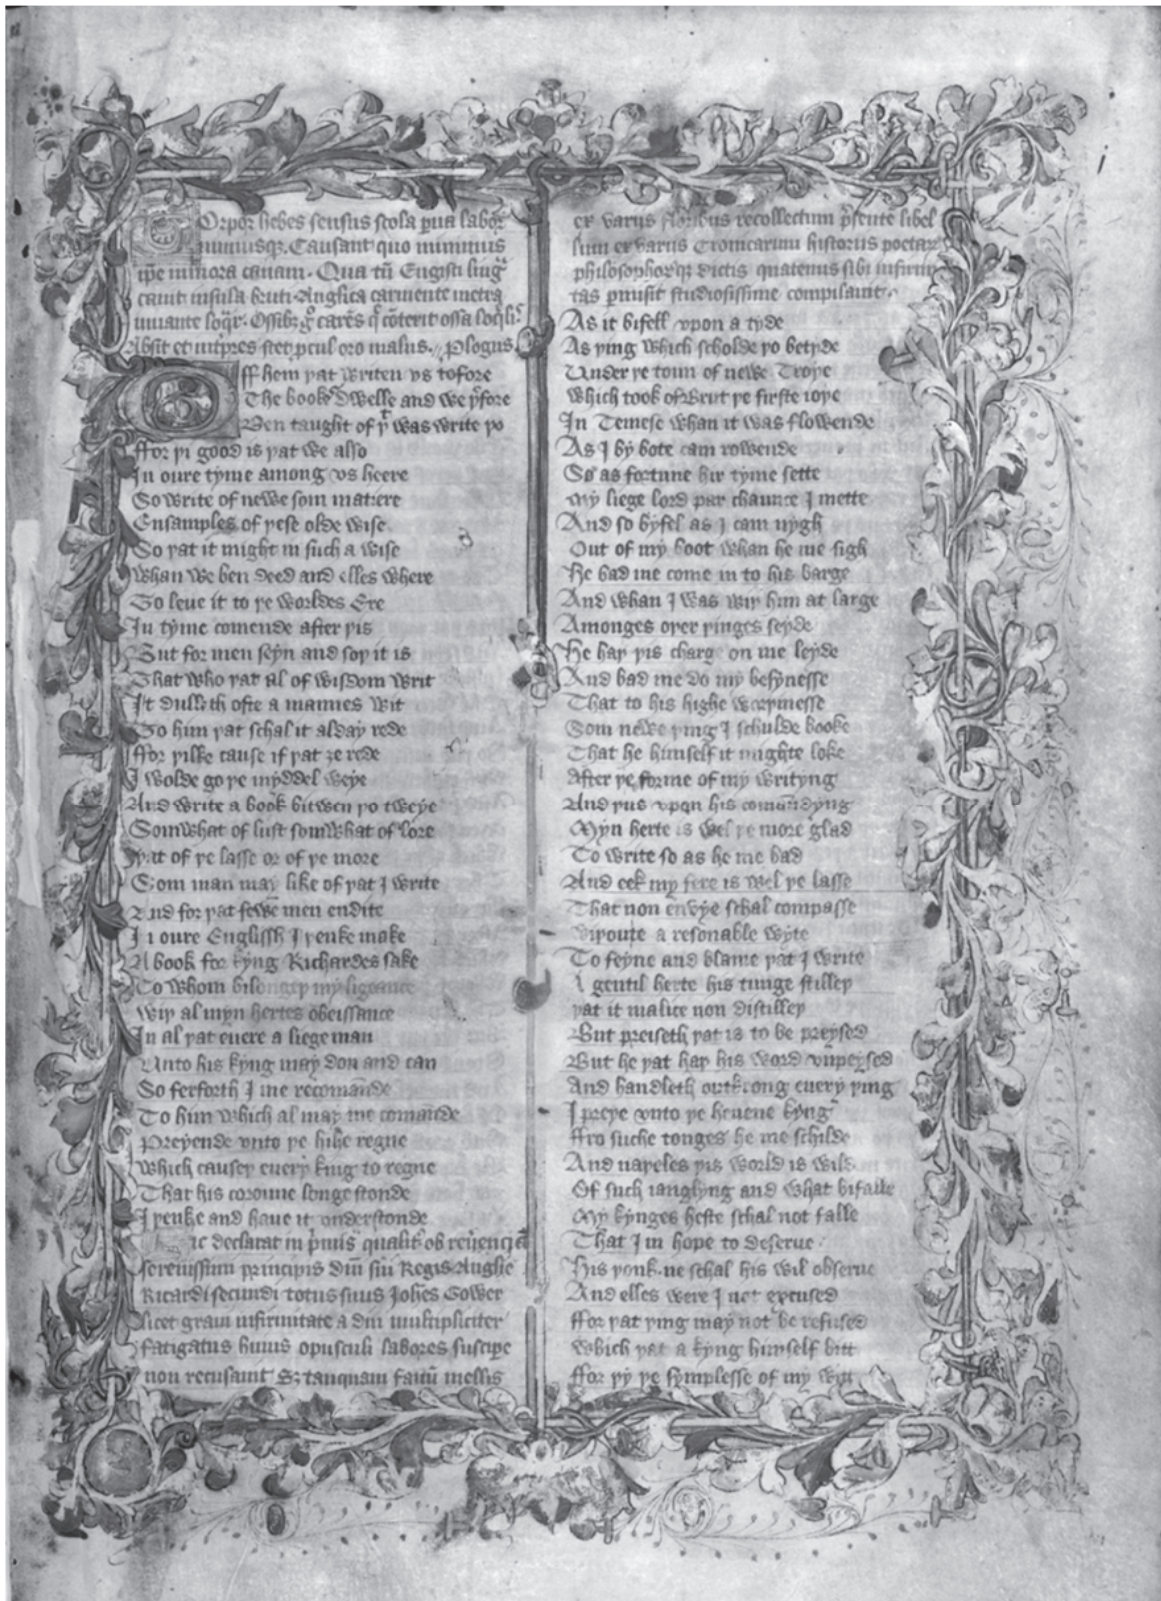 Orpor hebes sensus scola p̱ua labor
minimusqȝ. Causant quo minimus
ip̄e minora canam. Qua tn̄ Engisti ling̃
canit insula bruti. Anglica carmente metra
iuuante loq̃r. Ossibȝ g̊ carēs q̃ cōterit ossa loq̃lis
Absit et int̕pres stet p̱cul oro malus. // P̱logus
Off hem þat writen vs tofore
The bookes dwelle and we þ̕fore
Ben taught of þt was write þo
ffor þi good is þat we also
In oure tyme among vs heere
So write of newe som matiere
Ensamples of þese olde wise
So þat it might in such a wise
Whan we ben deed and elles where
To leue it to þe worldes Ere
In tyme comende after þis
But for men seyn and soþ it is
That who þat al of wisdom writ
It dulleth ofte a mannes wit
To him þat schal it alday rede
ffor þilke cause if þat ȝe rede
I wolde go þe myddel weye
And write a book bitwen þo tweye
Somwhat of lust somwhat of lore
þat of þe lasse or of þe more
Som man may like of þat I write
And for þat fewe men endite
In oure Englissh I þenke make
A book for kyng Richardes sake
To whom bilongeþ my ligeance
Wiþ al myn hertes obeissance
In al þat euere a liege man
Vnto his kyng may don and can
So ferforth I me recomāde
To him which al may me comāde
Preyende vnto þe hihe regne
Which causeþ euery king to regne
That his coroune longe stonde
I þenke and haue it vnderstonde
Hic declarat in p̕mis qualit̕ ob reu̕enciā
serenissimi principis dn̄i sui Regis Anglie
Ricardi secundi totus suus Joh̄es Gower
licet graui infirmitate a diu multipliciter
fatigatus huius opusculi labores suscipe
non recusauit Sȝ tanquam fauū mellis
ex variis floribus recollectum p̕sente libel
lum ex variis Cronicarum historiis poetarꝝ
philosophorꝝqȝ dictis quatenus sibi infirmi
tas p̱misit studiosissime compilauit.
As it bifell vpon a tyde
As þing which scholde þo betyde
Under þe toun of newe Troye
Which took of Brut þe firste ioye
In Temese whan it was flowende
As I by bote cam rowende
So as fortune hir tyme sette
My liege lord par chaunce I mette
And so byfel as I cam nygh
Out of my boot whan he me sigh
He bad me come in to his barge
And whan I was wiþ him at large
Amonges oþer þinges seyde
He haþ þis charge on me leyde
And bad me do my besynesse
That to his highe worþinesse
Som newe þing I schulde booke
That he himself it mighte loke
After þe forme of my writyng
And þus vpon his comādyng
Myn herte is wel þe more glad
To write so as he me bad
And eek my fere is wel þe lasse
That non envye schal compasse
Wiþoute a resonable wyte
To feyne and blame þat I write
A gentil herte his tunge stilleþ
þat it malice non distilleþ
But preiseth þat is to be preysed
But he þat haþ his word vnpeysed
And handleth outkrong euery þing
I preye vnto þe heuene kyng
ffro suche tonges he me schilde
And naþeles þis world is wilde
Of such ianglyng and what bifalle
My kynges heste schal not falle
That I in hope to deserue
His þonk ne schal his wil obserue
And elles were I not excused
ffor þat þing may not be refused
Which þat a kyng himself bitt
ffor þy þe symplesse of my wit